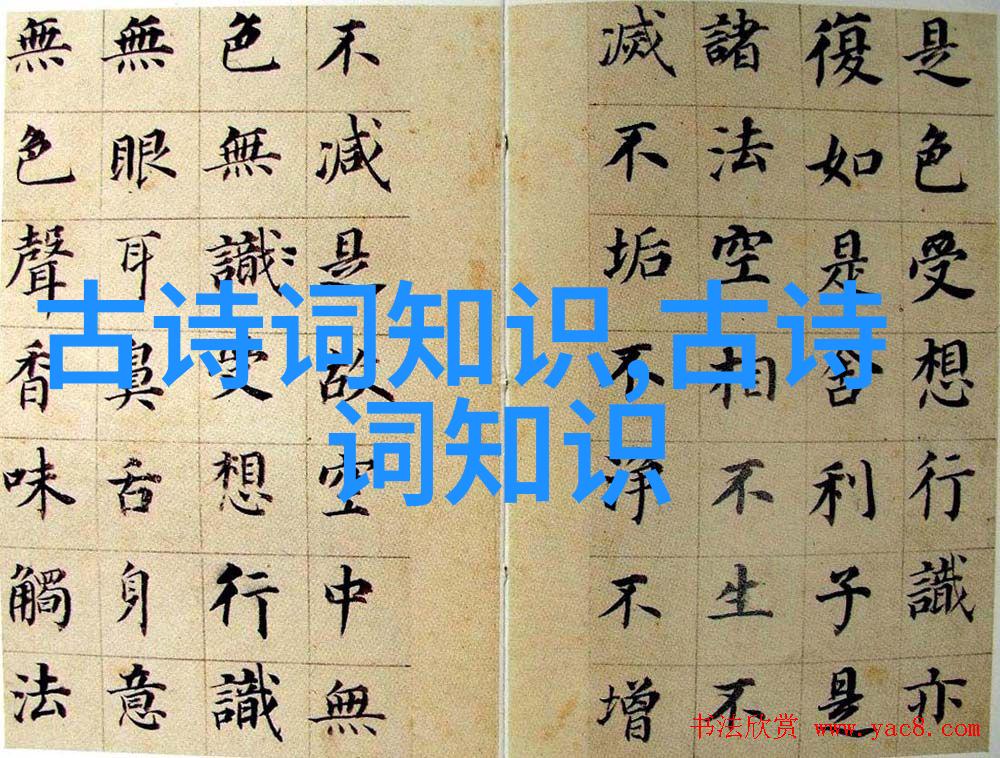 是色受想行識亦
復如是舍利子是
諸法空相不生不
滅不垢不淨不增
不減是故空中無
色無識受想行識
無眼耳鼻舌身意
無色聲香味觸法
古诗词知识,古诗
词知识
书法欣赏 www.yac8.com